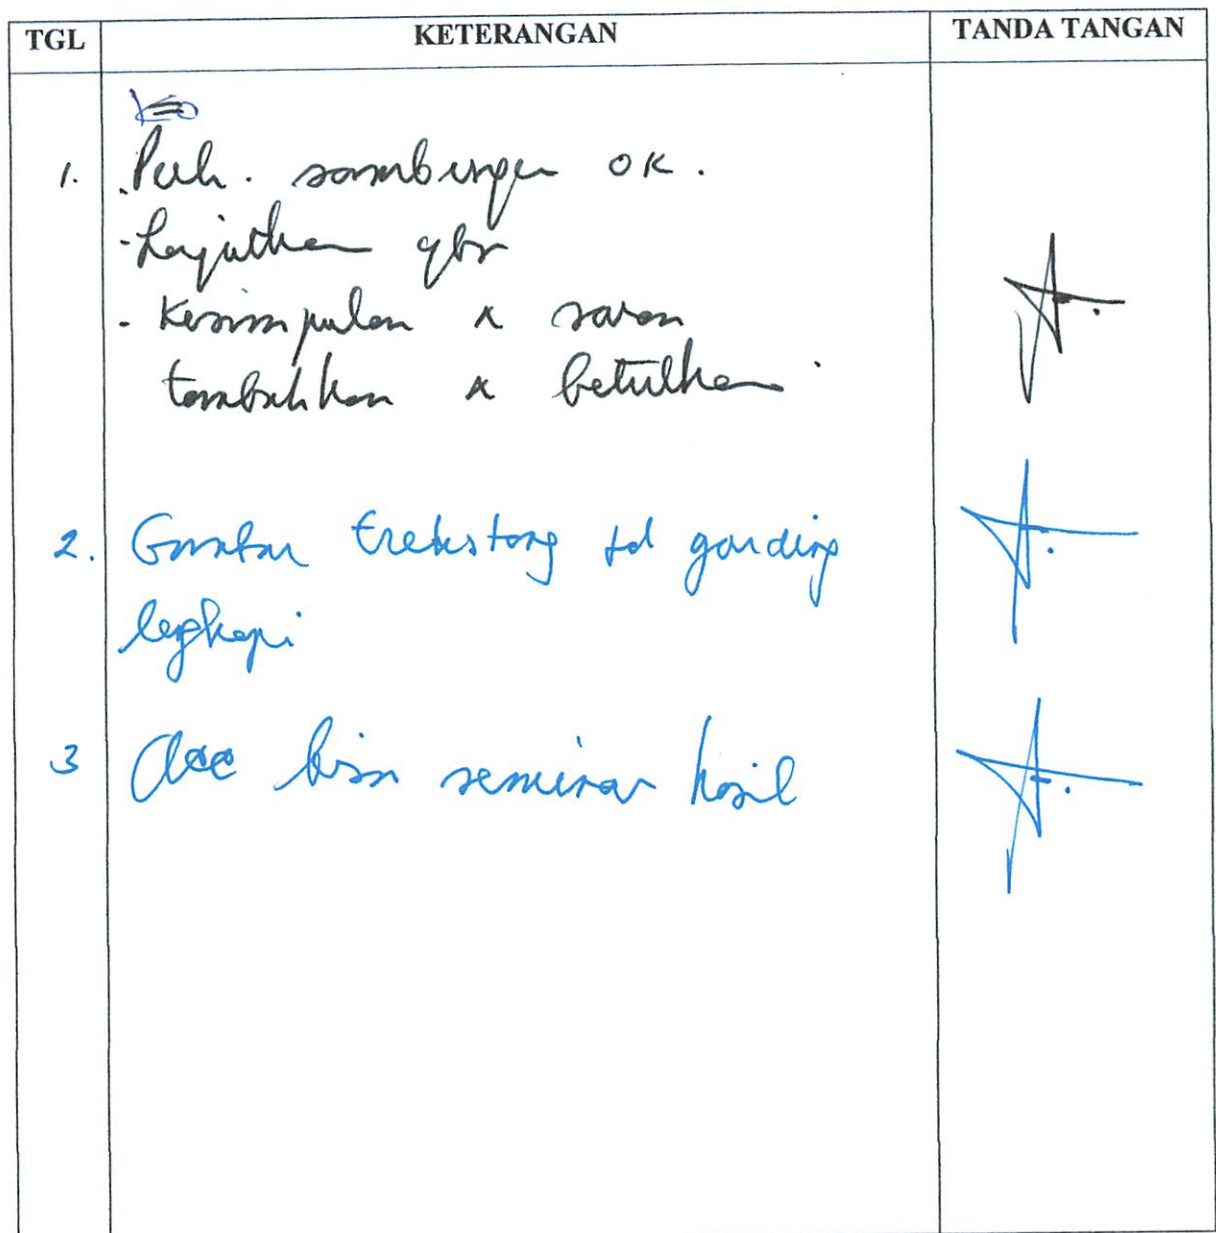 TGL KETERANGAN TANDA TANGAN
1. - Perh. sambungan OK.
- Lanjutkan gbr
- Kesimpulan & saran
tambahkan & betulkan.
2. Gambar trekstang td gording
lengkapi
3 Acc bisa seminar hasil